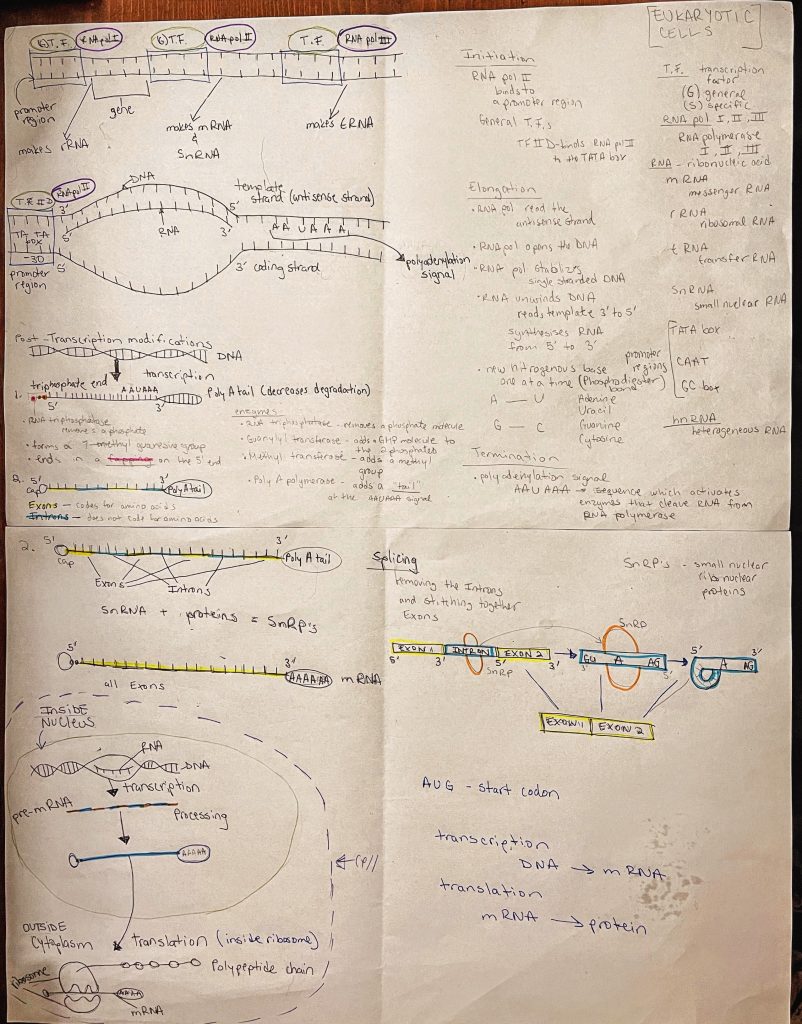 EUKARYOTIC
CELLS
(G) T.F.
RNA pol I
(G) T.F.
RNA pol II
T.F.
RNA pol III
promoter
region
gene
makes rRNA
makes mRNA
&
SnRNA
makes tRNA
T.F. II D
RNA pol II
DNA
template
strand (antisense strand)
3'
5'
5'
RNA
3'
AA UAAA
TA TA
box
-30
promoter
region
5'
3' coding strand
polyadenylation
signal
Post-Transcription modifications
DNA
transcription
1. triphosphate end
AAUAAA
Poly A tail (decreases degradation)
5'
3'
• RNA triphosphatase
removes a phosphate
• forms a 7-methyl guanosine group
• ends in a capping on the 5' end
enzymes:
• RNA triphosphatase - removes a phosphate molecule
• Guanylyl transferase - adds a GMP molecule to
the 2 phosphates
• Methyl transferase - adds a methyl
group
• Poly A polymerase - adds a "tail"
at the AAUAAA signal
2. 5'
cap
3'
Poly A tail
Exons - codes for amino acids
Introns - does not code for amino acids
Initiation
RNA pol II
binds to
a promoter region
General T.F.s
TF II D-binds RNA pol II
to the TATA box
Elongation
• RNA pol read the
antisense strand
• RNA pol opens the DNA
• RNA pol stabilizes
single stranded DNA
• RNA unwinds DNA
reads template 3' to 5'
synthesises RNA
from 5' to 3'
• new nitrogenous base
one at a time (Phosphodiester)
bond
A — U
Adenine
Uracil
G — C
Guanine
Cytosine
Termination
• polyadenylation signal
AAUAAA → sequence which activates
enzymes that cleave RNA from
RNA polymerase
T.F. transcription
factor
(G) general
(S) specific
RNA pol I, II, III
RNA polymerase
I, II, III
RNA - ribonucleic acid
mRNA
messenger RNA
rRNA
ribosomal RNA
tRNA
transfer RNA
SnRNA
small nuclear RNA
promoter
regions
TATA box
CAAT
GC box
hnRNA
heterogeneous RNA
2. 5'
3'
cap
Poly A tail
Exons
Introns
SnRNA + proteins = SnRp's
5'
3'
AAAAAA
mRNA
all Exons
Splicing
removing the Introns
and stitching together
Exons
SnRP's - small nuclear
ribonuclear
proteins
SnRP
EXON 1
INTRON
EXON 2
5'
3'
5'
3'
SnRp
GU
A
AG
3'
5'
5'
3'
A
AG
EXON 1
EXON 2
INSIDE
NUCLEUS
RNA
DNA
transcription
pre-mRNA
Processing
AAAAA
Cell
OUTSIDE
Cytoplasm
translation (inside ribosome)
Polypeptide chain
ribosome
AAAA
mRNA
AUG - start codon
transcription
DNA → mRNA
translation
mRNA → protein